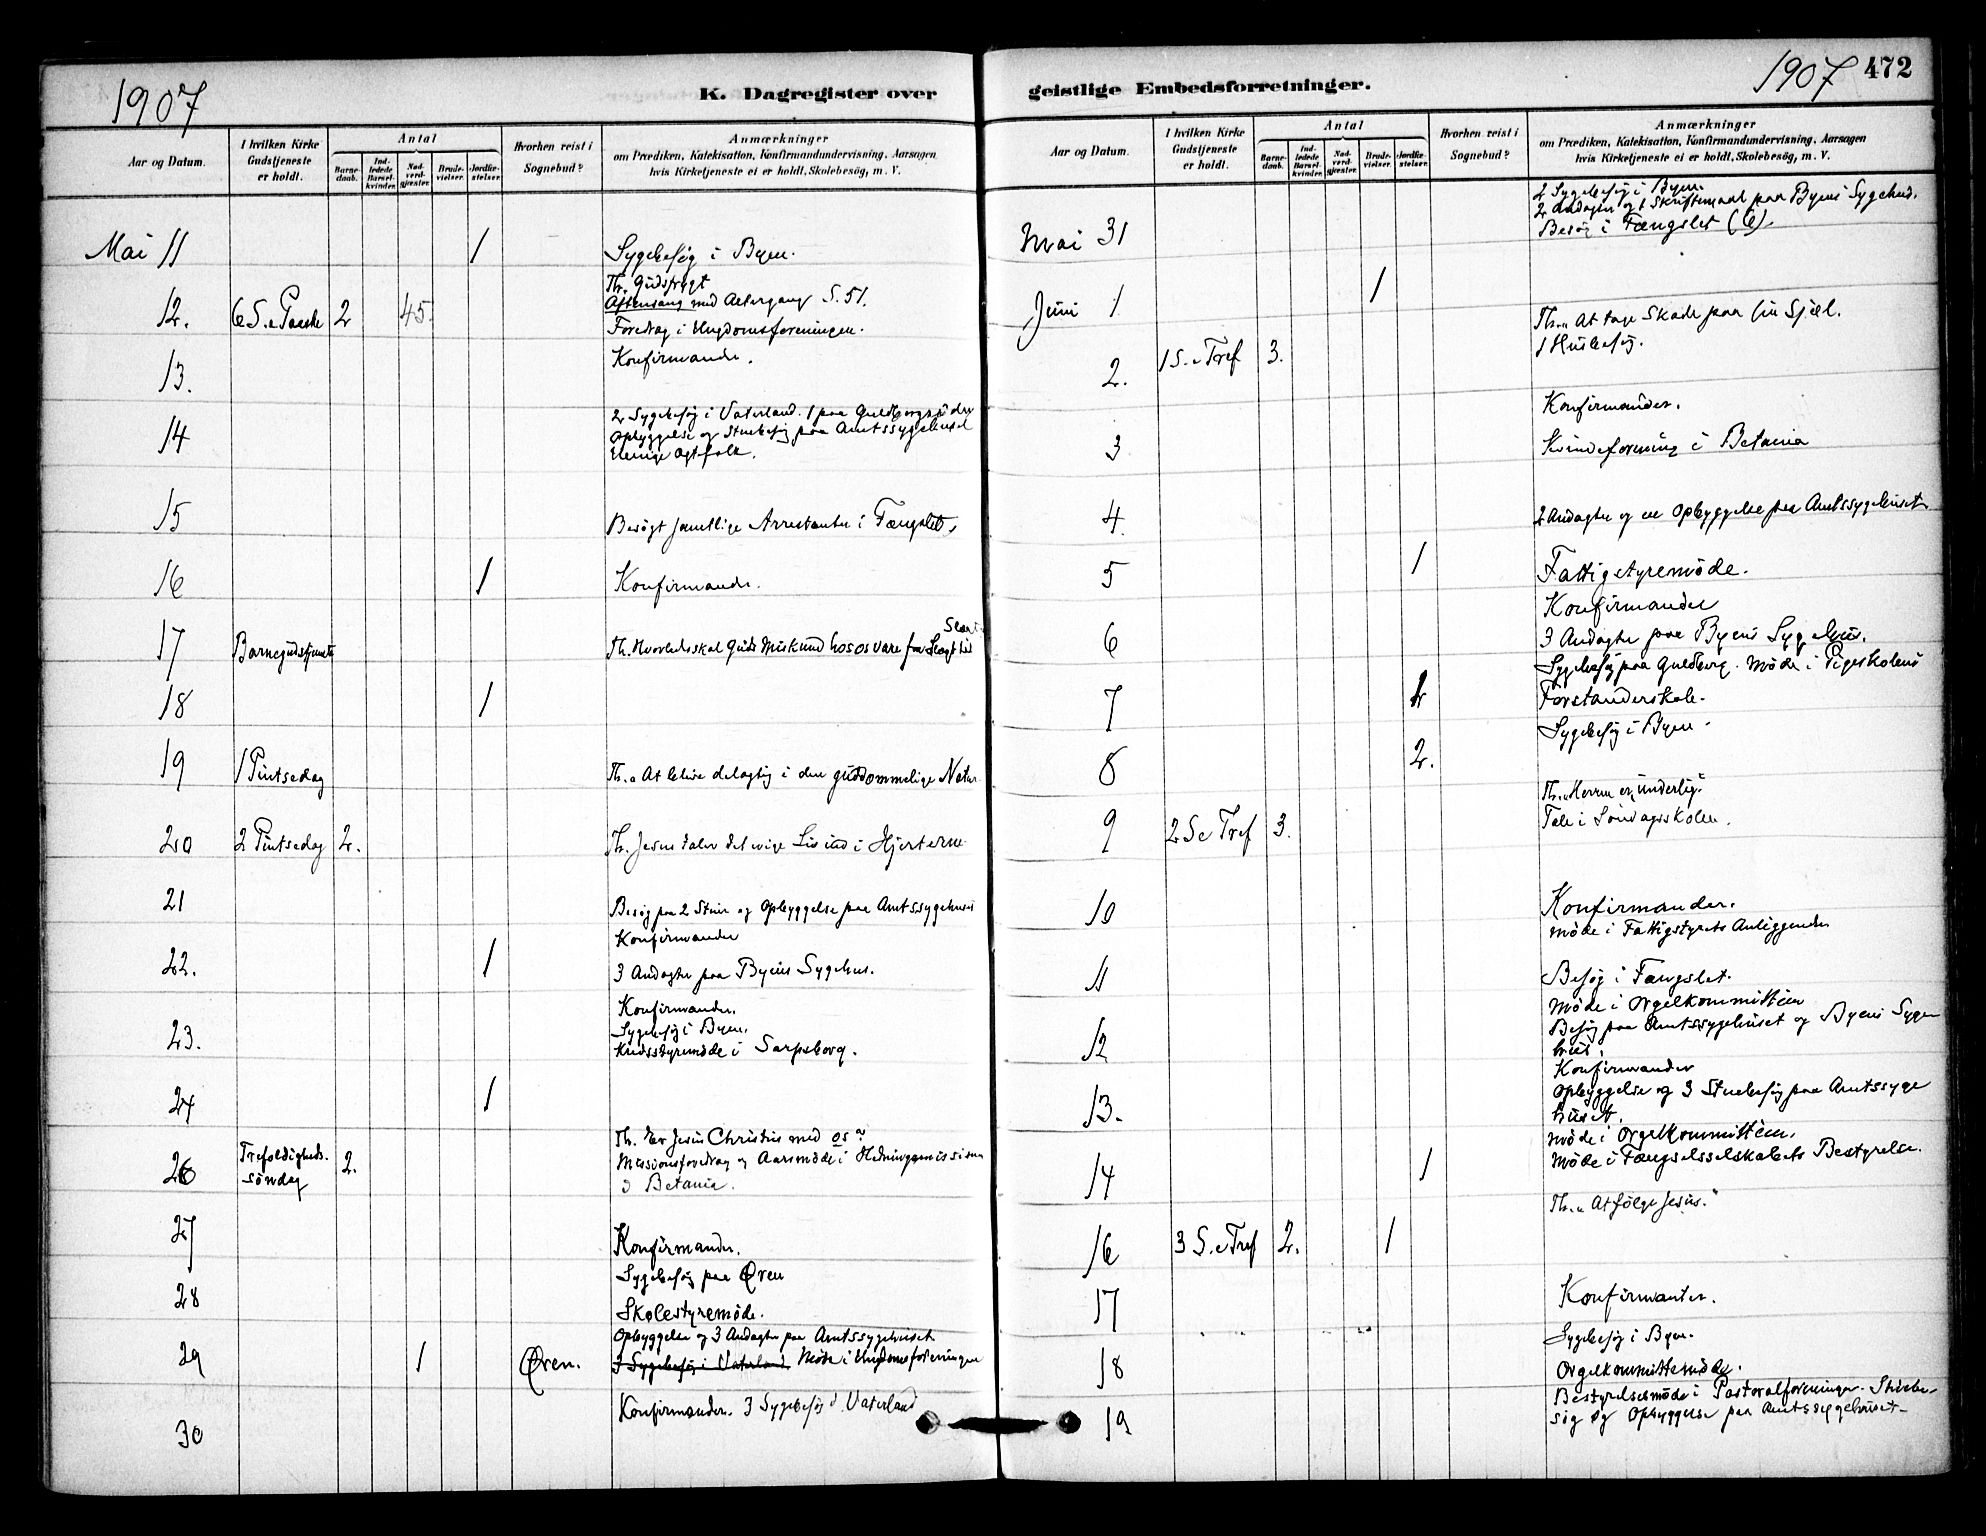 1907
K. Dagregister over
Aar og Datum.
I hvilken Kirke Gudstjeneste er holdt.
Antal
Barne-daab.
Ind-ledede Barsel-kvinder.
Nad-verd-gjæster.
Brude-vielser.
Jordfæ-stelser.
Hvorhen reist i Sognebud?
Anmærkninger
om Prædiken, Katekisation, Konfirmandundervisning, Aarsagen
hvis Kirketjeneste ei er holdt, Skolebesög, m. V.
Mai 11 1 Sygebesög i Byen.
Th. Gudsfrygt
12. 6 S. e Paaske 2 45. Aftensang med Altergang S. 51.
Foredrag i Ungdomsforeningen.
13. Konfirmander.
2 Sygebesög i Vaterland. 1 paa
14 Opbyggelse og Stuebesög paa Amtssygehuset
15 Besögt samtlige Arrestanter i Fængslet.
16 1 Konfirmander.
17 Barnegudstjeneste Th. Hvorledes skal Guds Miskund hos os vare fra Slægt til
Slægt
18 1
19 1 Pintsedag Th. „At blive delagtig i den guddommelige Natur
20 2 Pintsedag 2. Th. Jesus taler det evige Liv ind i Hjerterne
21 Besög paa 2 Stuer og Opbyggelse paa Amtssygehuset
Konfirmander
22. 1 3 Andagter paa Byens Sygehus.
Konfirmander.
23. Sygebesög i Byen.
Kredsstyremöde i Sarpsborg.
24 1
Th. Er Jesus Christus med os?
26 Trefoldigheds-söndag 2. Missionsforedrag og Aarsmöde i Hedningemissionen
i Betania.
27 Konfirmander.
Sygebesög paa Øren
28 Skolestyremöde.
Opbyggelse og 3 Andagter paa Amtssygehuset
29 1 Øren. 3 Sygebesög i Vaterland. Möde i Ungdomsforeningen
30 Konfirmander. 3 Sygebesög i Vaterland
geistlige Embedsforretninger.
1907 472
Aar og Datum.
I hvilken Kirke Gudstjeneste er holdt.
Antal
Barne-daab.
Ind-ledede Barsel-kvinder.
Nad-verd-gjæster.
Brude-vielser.
Jordfæ-stelser.
Hvorhen reist i Sognebud?
Anmærkninger
om Prædiken, Katekisation, Konfirmandundervisning, Aarsagen
hvis Kirketjeneste ei er holdt, Skolebesög, m. V.
2 Sygebesög i Byen.
2 Andagter og 1 Skriftemaal paa Byens Sygehus.
Mai 31 Besög i Fængslet (6).
Juni 1 1
Th. „At tage Skade paa sin Sjæl.
2. 1 S. e Tref 3. 1 Husbesög.
Konfirmander.
3 Kvindeforening i Betania
4. 2 Andagter og en Opbyggelse paa Amtssygehuset
5 1 Fattigstyremöde.
Konfirmander
6 3 Andagter paa Byens Sygehus.
Sygebesög paa Guldberg. Möde i Pigeskolens
7 Forstanderskab.
Sygebesög i Byen.
8 2.
Th. „Herren er underlig."
9 2 S e Tref 3. Tale i Söndagsskolen.
10 Konfirmander.
Möde i Fattigstyrets Anliggender
11 Besög i Fængslet.
Möde i Orgelkommittéen
12 Besög paa Amtssygehuset og Byens Syge
hus.
Konfirmander
13. Opbyggelse og 3 Stuebesög paa Amtssyge
huset.
Möde i Orgelkommittéen.
14 1 Möde i Fængselsselskabets Bestyrelse.
Th. „At fölge Jesus."
16 3 S. e Tref 2. 1
17 Konfirmanter.
Sygebesög i Byen.
18 Orgelkommittemöde.
Bestyrelsesmöde i Pastoralforeningen. Stuebe-
19 sög og Opbyggelse paa Amtssygehuset